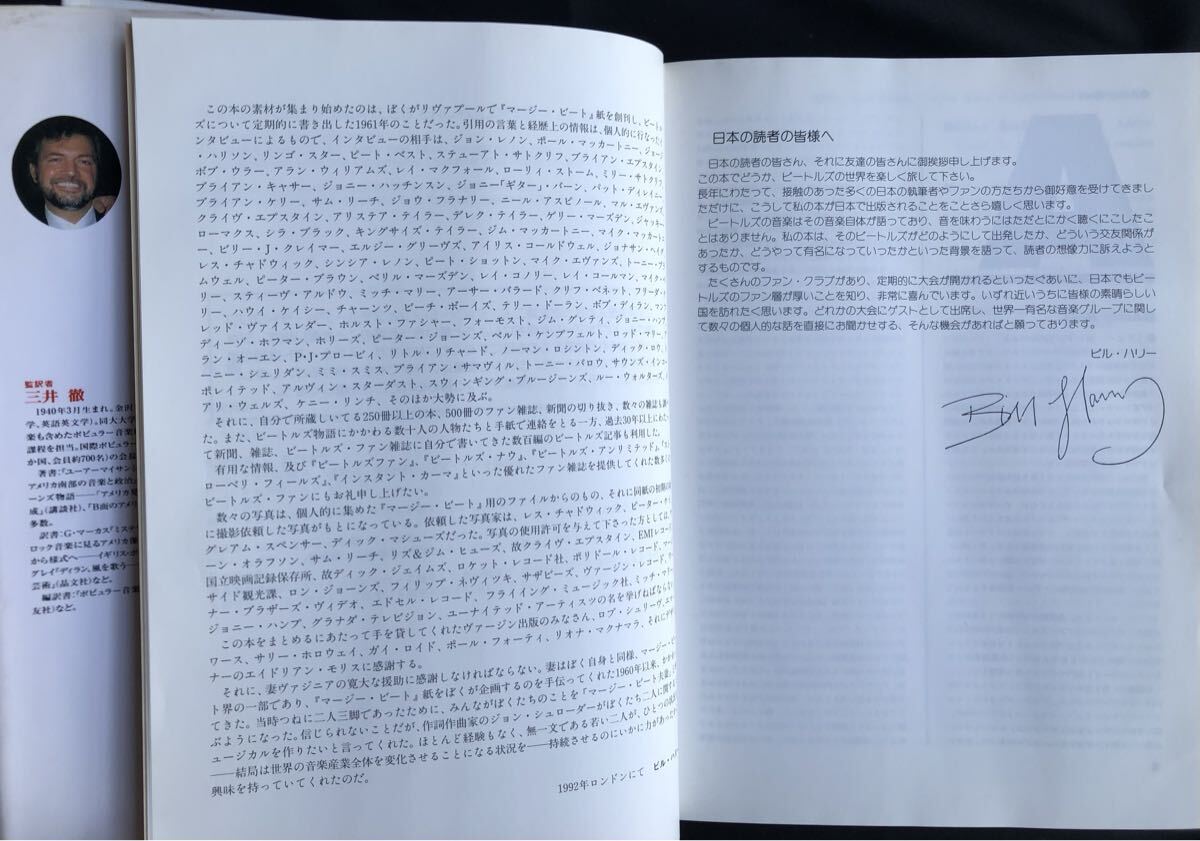 監訳者
三井 徹
1940年3月生まれ。金沢
学、英語英文学)。同大大学
楽も含めたポピュラー音楽
課程を担当。国際ポピュラー
か国、会員約700名)の会長
著書:『ユーアーマイサン
アメリカ南部の音楽と政治』
ーンズ物語——「アメリカ
成』(講談社)、『B面のアメ
多数。
訳書:G・マーカス『ミステ
ロック音楽に見るアメリカ像
から様式へ——イギリス・ポ
グレイ『ディラン、風を歌う
芸術』(晶文社)など。
編訳書:『ポピュラー音楽
友社)など。
この本の素材が集まり始めたのは、ぼくがリヴァプールで『マージー・ビート』紙を創刊し、ビート
ズについて定期的に書き出した1961年のことだった。引用の言葉と経歴上の情報は、個人的に行なった
ンタビューによるもので、インタビューの相手は、ジョン・レノン、ポール・マッカートニー、ジョー
・ハリソン、リンゴ・スター、ピート・ベスト、ステューアト・サトクリフ、ブライアン・エプスタイン
ボブ・ウラー、アラン・ウィリアムズ、レイ・マクフォール、ローリィ・ストーム、ミリー・サトクリフ
ブライアン・キャサー、ジョニー・ハッチンスン、ジョニー「ギター」・バーン、パット・ディレイニー
ブライアン・ケリー、サム・リーチ、ジョウ・フラナリー、ニール・アスピノール、マル・エヴァンズ
クライヴ・エプスタイン、アリステア・テイラー、デレク・テイラー、ゲリー・マーズデン、ジャッキー
ローマクス、シラ・ブラック、キングサイズ・テイラー、ジム・マッカートニー、マイク・マッカートニ
ー、ビリー・J・クレイマー、エルジー・グリーヴズ、アイリス・コールドウェル、ジョナサン・ヘイグ
レス・チャドウィック、シンシア・レノン、ピート・ショットン、マイク・エヴァンズ、トーニー・
ムウェル、ピーター・ブラウン、ベリル・マーズデン、レイ・コノリー、レイ・コールマン、マイク・
リー、スティーヴ・アルドウ、ミッチ・マリー、アーサー・バラード、クリフ・ベネット、フリーダ・ケ
リー、ハウイ・ケイシー、チャーンツ、ビーチ・ボーイズ、テリー・ドーラン、ボブ・ディラン、マン
レッド、ヴァイスレダー、ホルスト・ファシャー、フォーモスト、ジム・グレティ、ジョニー・ハンプ
ディーゾ・ホフマン、ホリーズ、ピーター・ジョーンズ、ベルト・ケンプフェルト、ロッド・マリー、ア
ラン・オーエン、P・J・プロービィ、リトル・リチャード、ノーマン・ロシントン、ディック・ロウ、ト
ーニー・シェリダン、ミミ・スミス、ブライアン・サマヴィル、トーニー・バロウ、サウンズ・インコー
ポレイテッド、アルヴィン・スターダスト、スウィンギング・ブルージーンズ、ルー・ウォルターズ、
アリ・ウェルズ、ケニー・リンチ、そのほか大勢に及ぶ。
それに、自分で所蔵している250冊以上の本、500冊のファン雑誌、新聞の切り抜き、数々の雑誌も調べ
た。また、ビートルズ物語にかかわる数十人の人物たちと手紙で連絡をとる一方、過去30年以上にわたっ
て新聞、雑誌、ビートルズ・ファン雑誌に自分で書いてきた数百編のビートルズ記事も利用した。
有用な情報、及び『ビートルズファン』、『ビートルズ・ナウ』、『ビートルズ・アンリミテッド』、『スト
ローベリ・フィールズ』、『インスタント・カーマ』といった優れたファン雑誌を提供してくれた数多くの
ビートルズ・ファンにもお礼申し上げたい。
数々の写真は、個人的に集めた『マージー・ビート』用のファイルからのもの、それに同紙の初期の
に撮影依頼した写真がもとになっている。依頼した写真家は、レス・チャドウィック、ピーター・ケイ
グレアム・スペンサー、ディック・マシューズだった。写真の使用許可を与えて下さった方としては、
ーン・オラフソン、サム・リーチ、リズ&ジム・ヒューズ、故クライヴ・エプスタイン、EMIレコード
国立映画記録保存所、故ディック・ジェイムズ、ロケット・レコード社、ポリドール・レコード、マー
サイド観光課、ロン・ジョーンズ、フィリップ・ネヴィツキ、サザビーズ、ヴァージン・レコード、ワ
ナー・ブラザーズ・ヴィデオ、エドセル・レコード、フライイング・ミュージック社、ミッチ・マリー
ジョニー・ハンプ、グラナダ・テレビジョン、ユーナイテッド・アーティスツの名を挙げねばならない
この本をまとめるにあたって手を貸してくれたヴァージン出版のみなさん、ロブ・シュリーヴ、
ワース、サリー・ホロウェイ、ガイ・ロイド、ポール・フォーティ、リオナ・マクナマラ、それにデザイ
ナーのエイドリアン・モリスに感謝する。
それに、妻ヴァジニアの寛大な援助に感謝しなければならない。妻はぼく自身と同様、マージー・ビー
ト界の一部であり、『マージー・ビート』紙をぼくが企画するのを手伝ってくれた1960年以来、
てきた。当時つねに二人三脚であったために、みんながぼくたちのことを『マージー・ビート夫妻』と
ぶようになった。信じられないことだが、作詞作曲家のジョン・シュローダーがぼくたち二人に関する
ュージカルを作りたいと言ってくれた。ほとんど経験もなく、無一文である若い二人が、ひとつの
——結局は世界の音楽産業全体を変化させることになる状況を——持続させるのにいかに力があったか
興味を持っていてくれたのだ。
1992年ロンドンにて ビル・ハ
日本の読者の皆様へ
日本の読者の皆さん、それに友達の皆さんに御挨拶申し上げます。
この本でどうか、ビートルズの世界を楽しく旅して下さい。
長年にわたって、接触のあった多くの日本の執筆者やファンの方たちから御好意を受けてきまし
ただけに、こうして私の本が日本で出版されることをことさら嬉しく思います。
ビートルズの音楽はその音楽自体が語っており、音を味わうにはただとにかく聴くにこしたこ
とはありません。私の本は、そのビートルズがどのようにして出発したか、どういう交友関係が
あったか、どうやって有名になっていったかといった背景を語って、読者の想像力に訴えようと
するものです。
たくさんのファン・クラブがあり、定期的に大会が開かれるといったぐあいに、日本でもビー
トルズのファン層が厚いことを知り、非常に喜んでいます。いずれ近いうちに皆様の素晴らしい
国を訪れたく思います。どれかの大会にゲストとして出席し、世界一有名な音楽グループに関し
て数々の個人的な話を直接にお聞かせする、そんな機会があればと願っております。
ビル・ハリー
Bill Harry